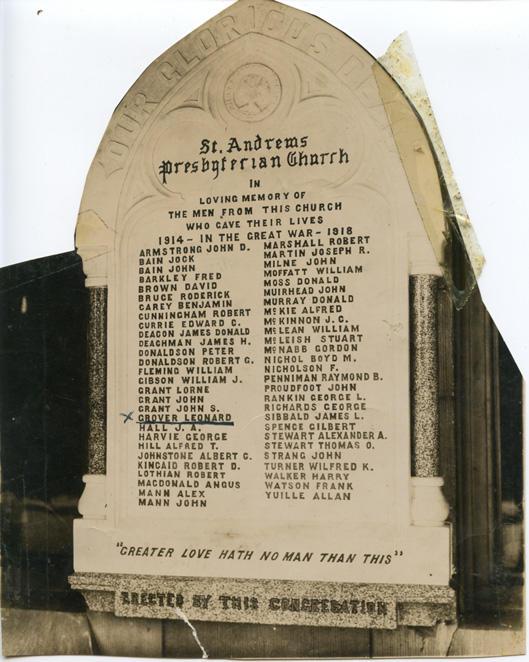 OUR GLORIOUS D
St. Andrews
Presbyterian Church
IN
LOVING MEMORY OF
THE MEN FROM THIS CHURCH
WHO GAVE THEIR LIVES
1914 - IN THE GREAT WAR - 1918
ARMSTRONG JOHN D.
BAIN JOCK
BAIN JOHN
BARKLEY FRED
BROWN DAVID
BRUCE RODERICK
CAREY BENJAMIN
CUNNINGHAM ROBERT
CURRIE EDWARD C.
DEACON JAMES DONALD
DEACHMAN JAMES H.
DONALDSON PETER
DONALDSON ROBERT G.
FLEMING WILLIAM
GIBSON WILLIAM J.
GRANT LORNE
GRANT JOHN
GRANT JOHN S.
x GROVER LEONARD
HALL J. A.
HARVIE GEORGE
HILL ALFRED T.
JOHNSTONE ALBERT C.
KINCAID ROBERT D.
LOTHIAN ROBERT
MACDONALD ANGUS
MANN ALEX
MANN JOHN
MARSHALL ROBERT
MARTIN JOSEPH R.
MILNE JOHN
MOFFATT WILLIAM
MOSS DONALD
MUIRHEAD JOHN
MURRAY DONALD
McKIE ALFRED
McKINNON J. C.
McLEAN WILLIAM
McLEISH STUART
McNABB GORDON
NICHOL BOYD M.
NICHOLSON F.
PENNIMAN RAYMOND B.
PROUDFOOT JOHN
RANKIN GEORGE L.
RICHARDS GEORGE
SIBBALD JAMES L.
SPENCE GILBERT
STEWART ALEXANDER A.
STEWART THOMAS O.
STRANG JOHN
TURNER WILFRED K.
WALKER HARRY
WATSON FRANK
YUILLE ALLAN
"GREATER LOVE HATH NO MAN THAN THIS"
ERECTED BY THIS CONGREGATION